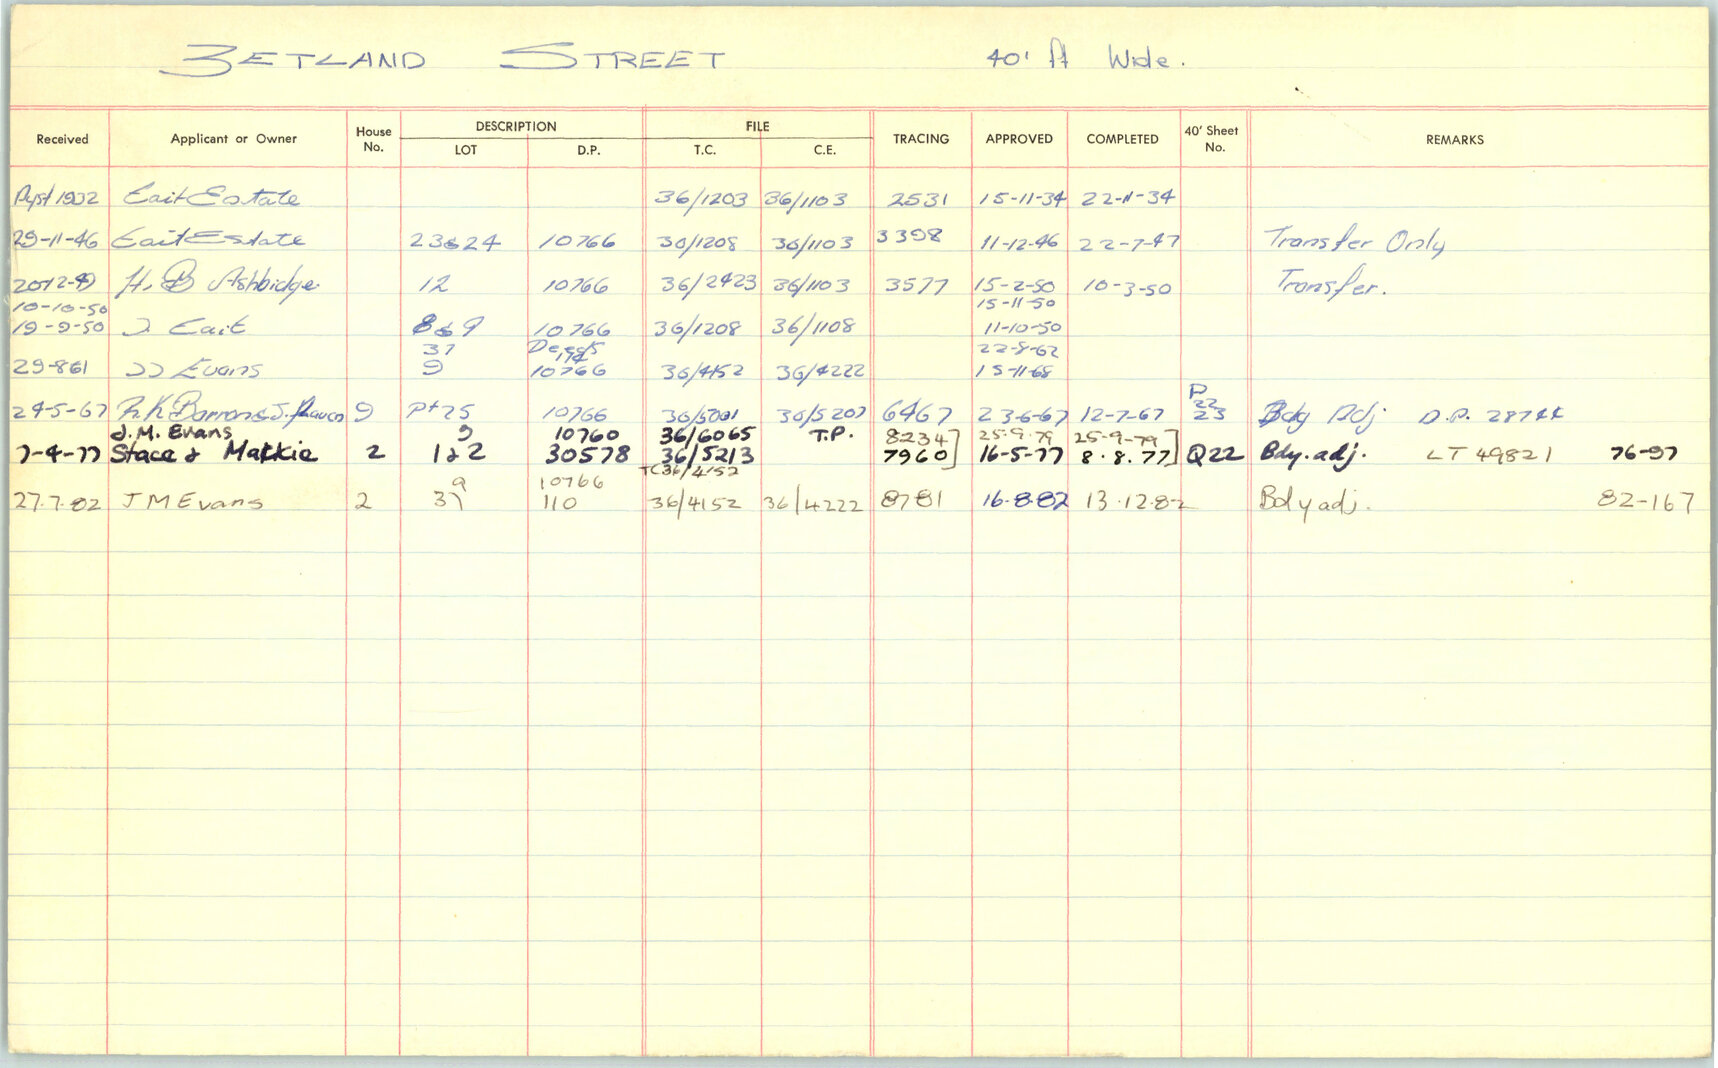 ZETLAND STREET 40' ft Wide.
Received Applicant or Owner House No. DESCRIPTION LOT D.P. FILE T.C. C.E. TRACING APPROVED COMPLETED 40' Sheet No. REMARKS
1932 Eait Estate 36/1203 36/1103 2531 15-11-34 22-11-34
29-11-46 Eait Estate 23&24 10766 36/1208 36/1103 3398 11-12-46 22-7-47 Transfer Only
20-12-49 H. B Ashbidge. 12 10766 36/2423 36/1103 3577 15-2-50 10-3-50 Transfer.
10-10-50 15-11-50
19-9-50 J. Eait 8&9 10766 36/1208 36/1108 11-10-50
37 Deeds 22-8-62
29-861 JJ Evans 9 10766 36/4152 36/4222 15-11-68
P 22
24-5-67 R.K Barron & J. 9 Pt 25 10766 36/5001 36/5207 6467 23-6-67 12-7-67 23 Bdy Adj D.P. 28744
J.M. Evans 9 10760 36/6065 T.P. 8234 25-9-79 25-9-79
7-4-77 Stace & Mackie 2 1&2 30578 36/5213 7960 16-5-77 8.8.77 Q22 Bdy. adj. LT 49821 76-97
9 10766 TC36/4152
27.7.82 J M Evans 2 37 110 36/4152 36/4222 8781 16-8-82 13.12.82 Bdy adj. 82-167